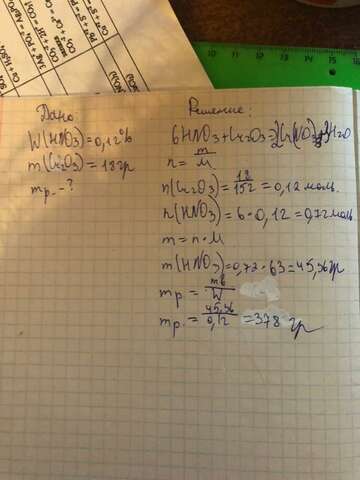 Дано
W(HNO3)=0,12%
m(Cr2O3)=18гр
mр.-?
Решение:
6HNO3+Cr2O3=2Cr(NO3)3+3H2O
n=m/M
n(Cr2O3)=18/152=0,12моль.
n(HNO3)=6·0,12=0,72моль
m=n·M
m(HNO3)=0,72·63=45,36гр
mр.=mв/W
mр.=45,36/0,12=378гр